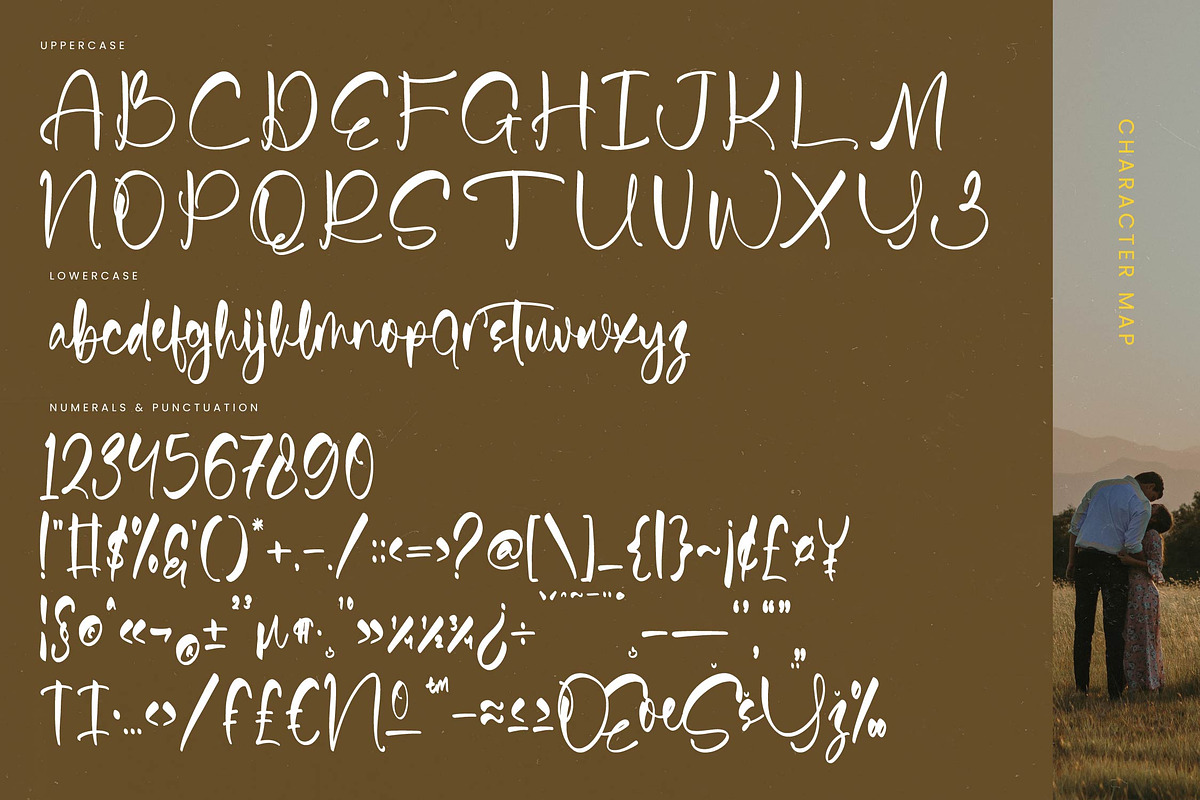 UPPERCASE
ABCDEFGHIJKLM
NOPQRSTUVWXYZ
LOWERCASE
abcdefghijklmnopqrstuvwxyz
NUMERALS & PUNCTUATION
1234567890
!"#$%&'()*+,-./:;<=>?@[\]_{|}~¡¢£¤¥
¦§©ª«¬®±²³µ¶·¸¹º»¼½¾¿÷–—‘’‚“”„
†‡•…‹›⁄₣₤€№™−≈≤≥ŒœŠšŸž‰
CHARACTER MAP